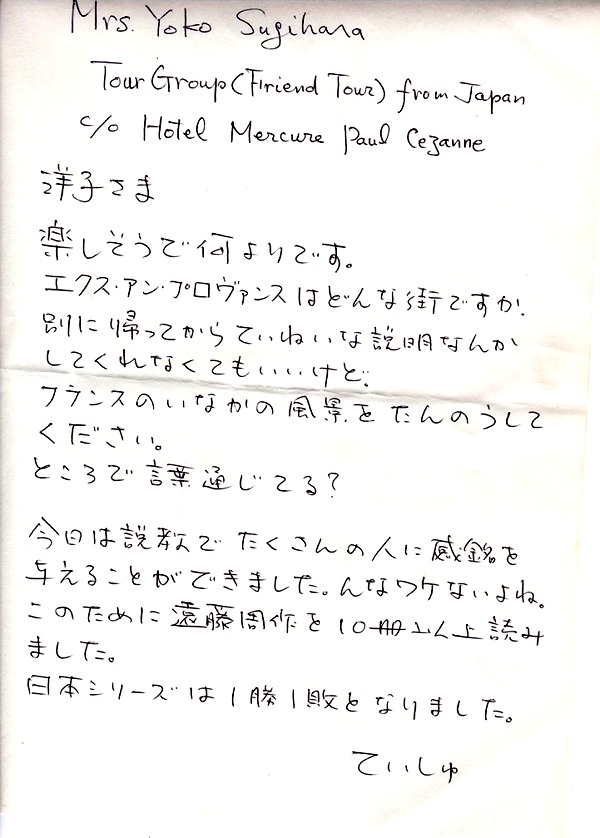 Mrs. Yoko Sugihara
Tour Group (Firiend Tour) from Japan
c/o Hotel Mercure Paul Cezanne
洋子さま
楽しそうで何よりです。
エクス・アン・プロヴァンスはどんな街ですか.
別に帰ってからていねいな説明なんか
してくれなくてもいいけど.
フランスのいなかの風景をたんのうして
ください。
ところで言葉通じてる?
今日は説教でたくさんの人に感銘を
与えることができました。んなワケないよね。
このために遠藤周作を10冊以上読み
ました。
日本シリーズは1勝1敗となりました。
ていしゅ